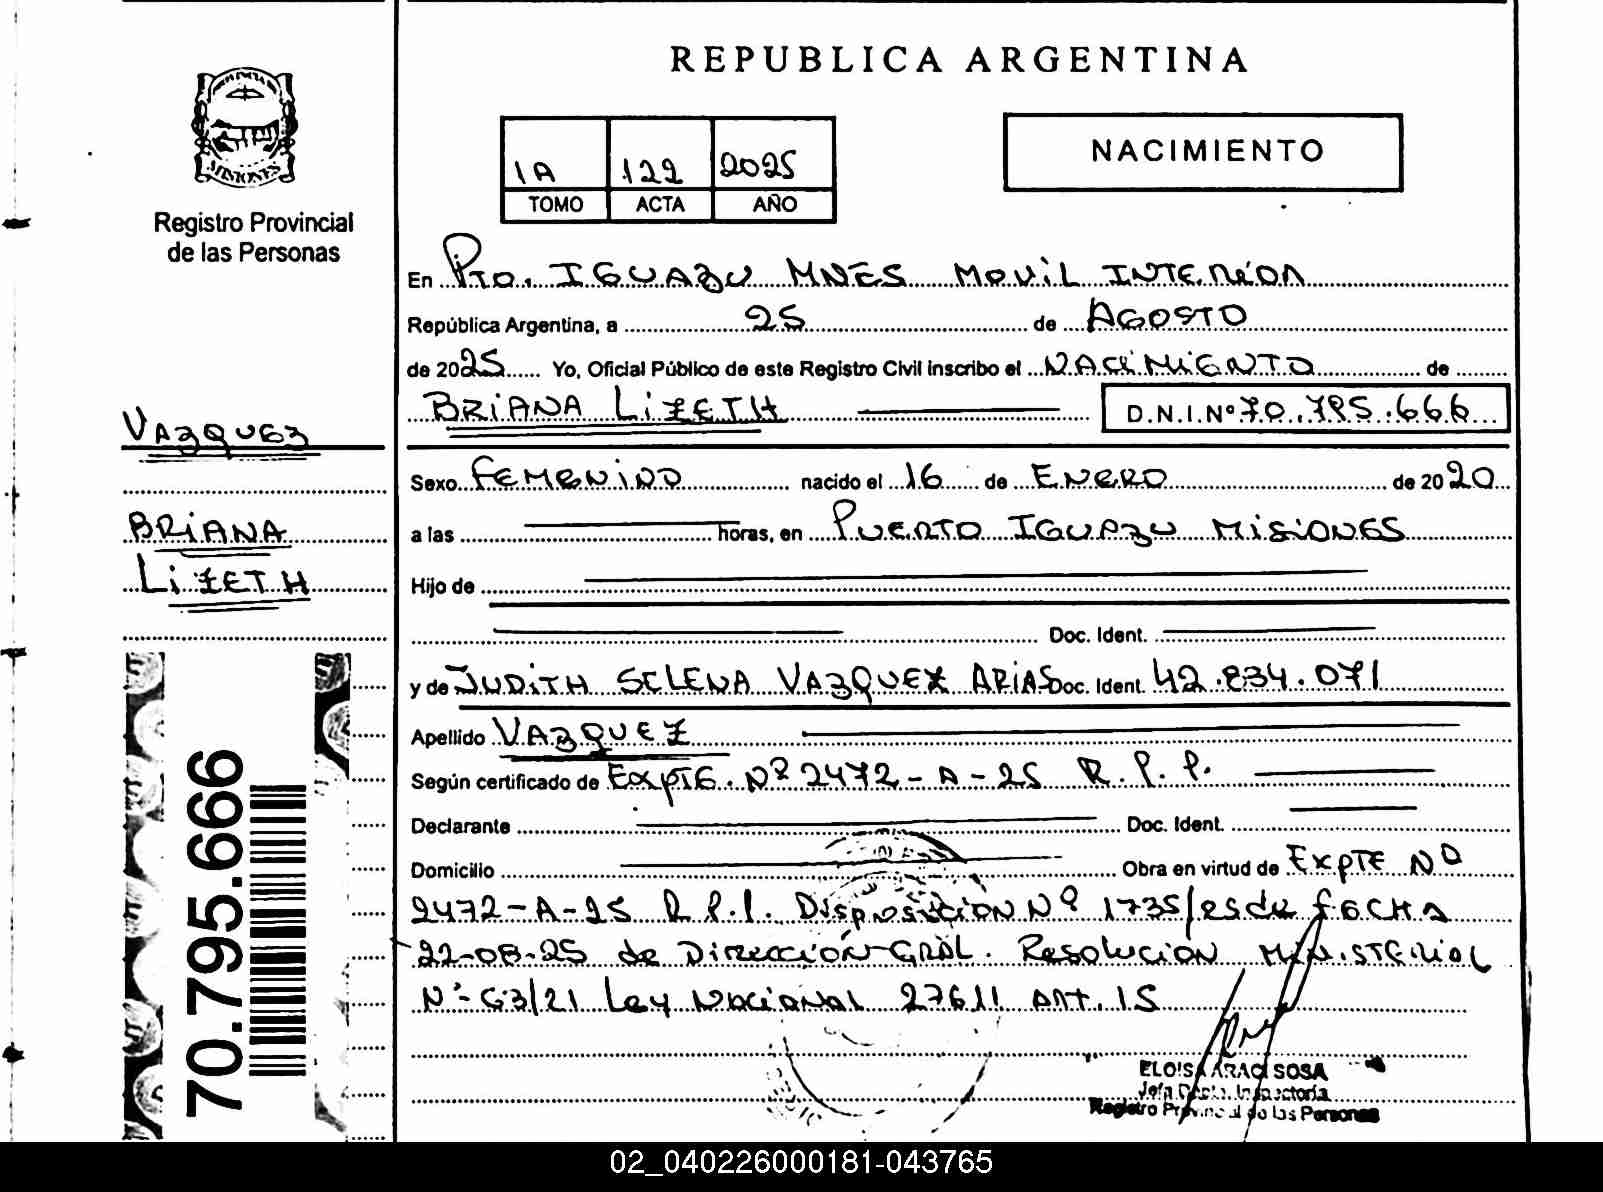 REPUBLICA ARGENTINA
MISIONES
Registro Provincial
de las Personas
1A 122 2025
TOMO ACTA AÑO
NACIMIENTO
En Pto. IGUAZU MNES MOVIL INTERIOR
República Argentina, a 25 de AGOSTO
de 2025 Yo, Oficial Público de este Registro Civil inscribo el NACIMIENTO de
BRIANA LIZETH D.N.I.Nº 70.795.666
VAZQUEZ
BRIANA
LIZETH
Sexo FEMENINO nacido el 16 de ENERO de 2020
a las horas, en PUERTO IGUAZU MISIONES
Hijo de
Doc. Ident.
y de JUDITH SELENA VAZQUEZ ARIAS Doc. Ident. 42.834.071
Apellido VAZQUEZ
Según certificado de EXPTE. Nº 2472-A-25 R.P.P.
Declarante Doc. Ident.
Domicilio Obra en virtud de EXPTE Nº
2472-A-25 R.P.P. Disposición Nº 1735/25 de FECHA
22-08-25 de Dirección GRAL. Resolución MINISTERIAL
Nº 63/21 Ley Nacional 27611 Art. 15
70.795.666
ELOISA ARACI SOSA
Jefa Depto. Inspectoría
Registro Provincial de las Personas
02_040226000181-043765